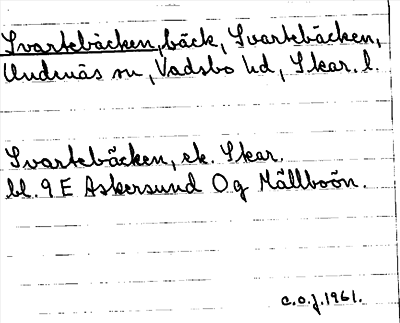 Svartebäcken, bäck, Svartebäcken,
Undenäs sn, Vadsbo hd, Skar. l.
Svartebäcken, ek. Skar.
bl. 9 E Askersund 0g Mällboön.
c.o.j. 1961.